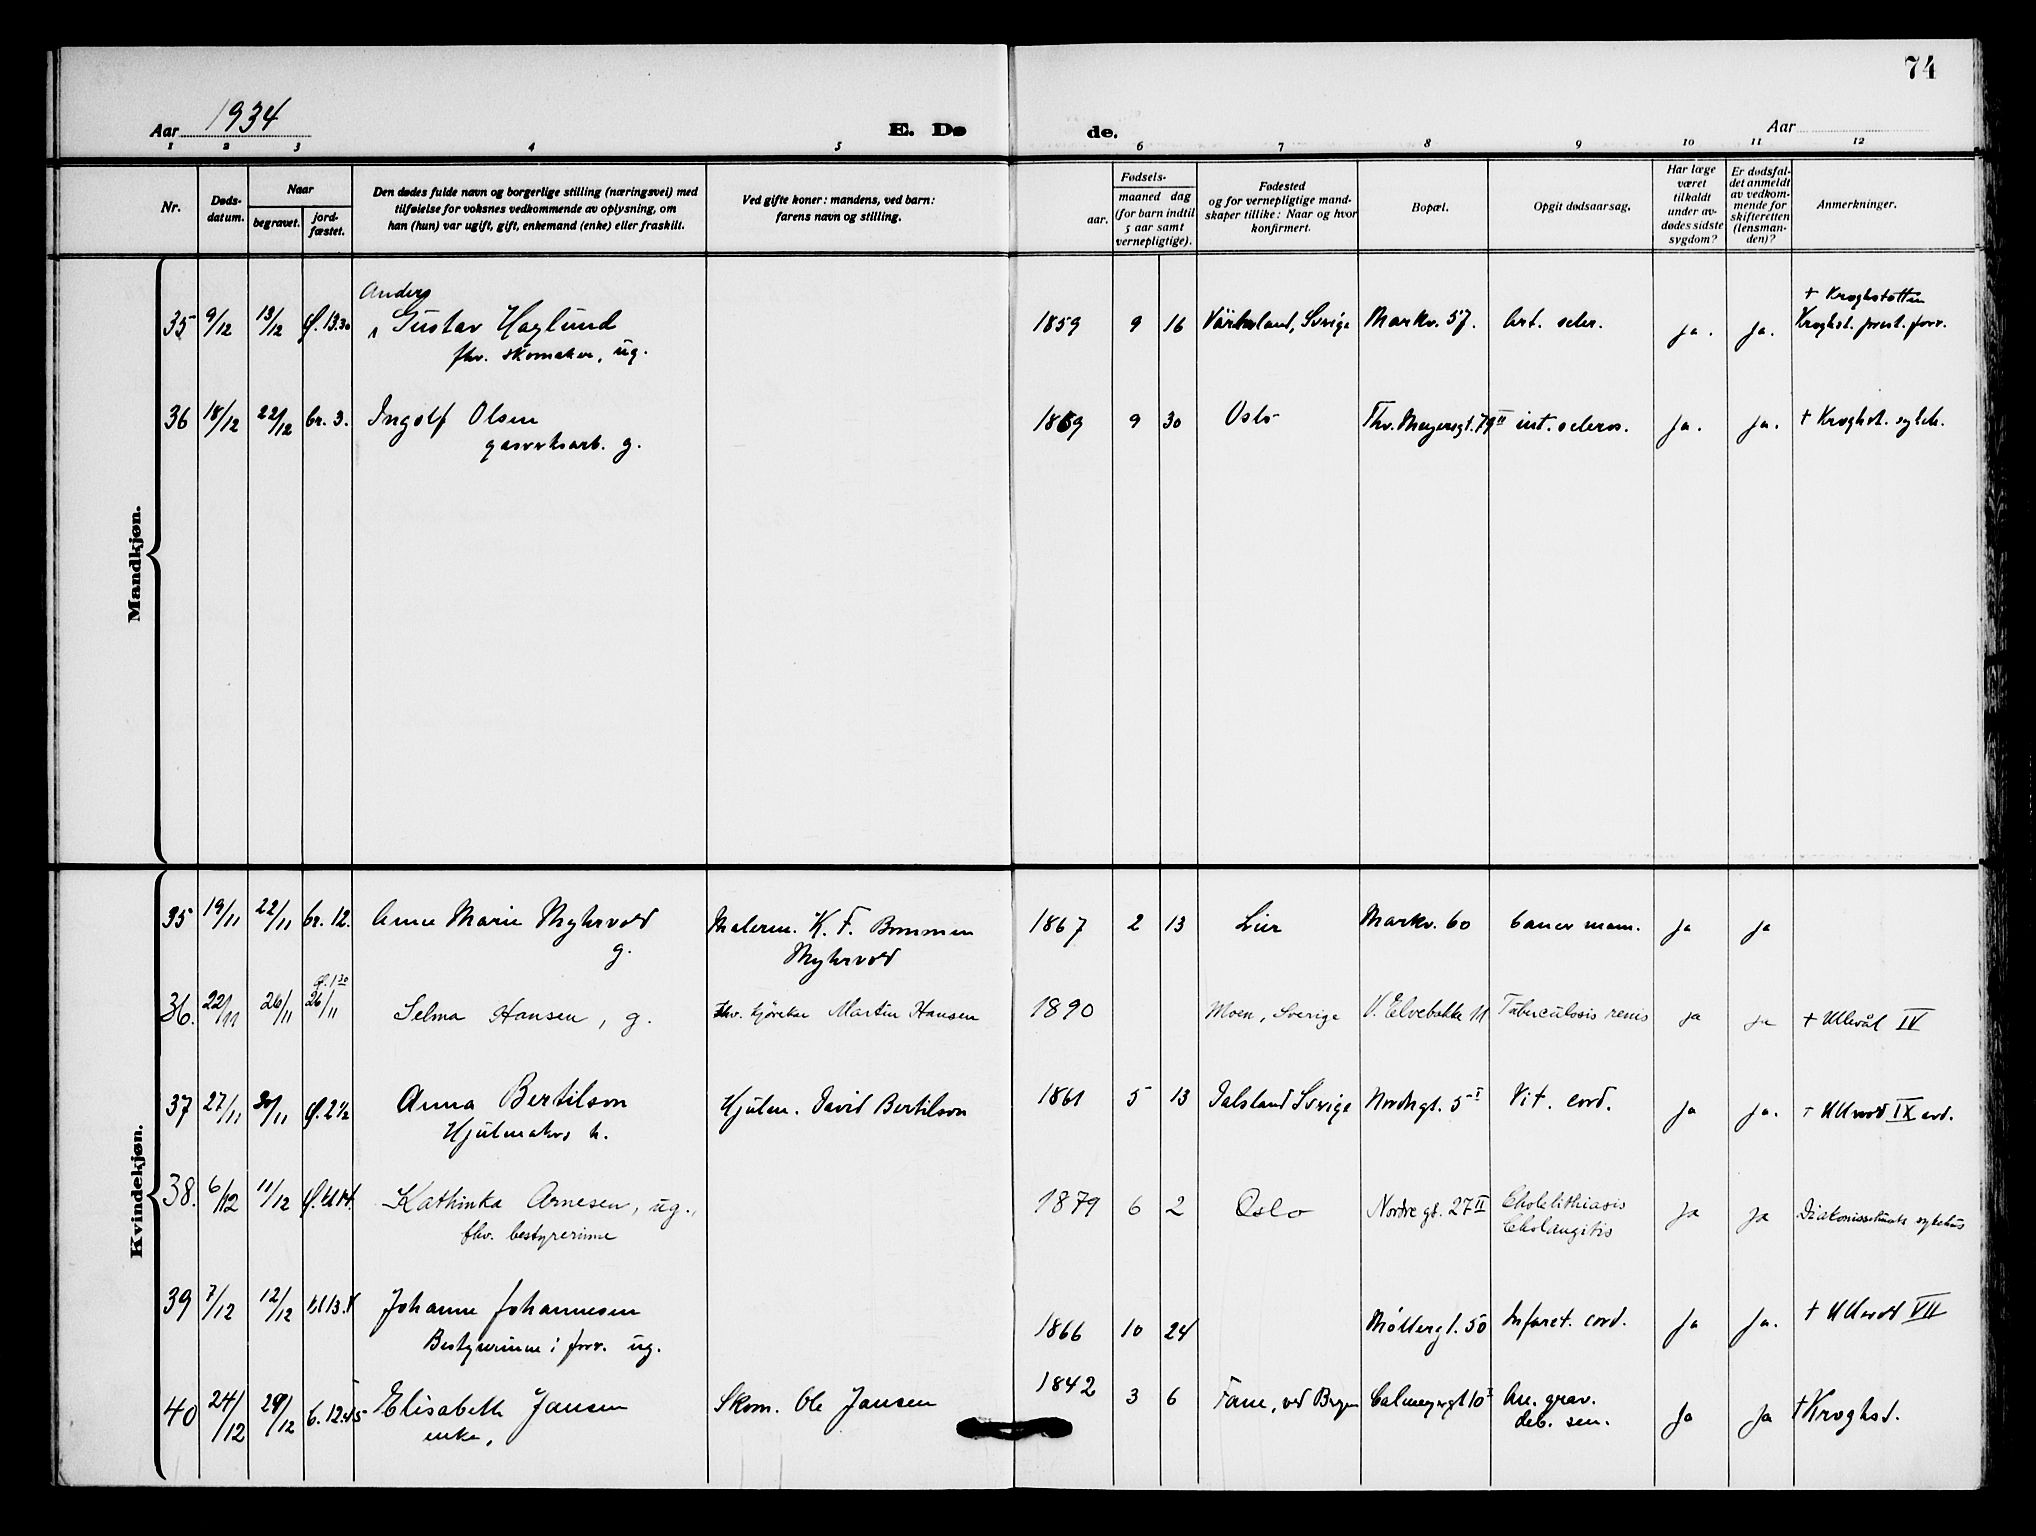 74
Aar 1934
E. Dø
de.
Aar
1 2 3 4 5 6 7 8 9 10 11 12
Nr.
Døds-
datum.
Naar
begravet.
jord-
fæstet.
Den dødes fulde navn og borgerlige stilling (næringsvei) med
tilføielse for voksnes vedkommende av oplysning, om
han (hun) var ugift, gift, enkemand (enke) eller fraskilt.
Ved gifte koner: mandens, ved barn:
farens navn og stilling.
Fødsels-
aar.
maaned dag
(for barn indtil
5 aar samt
vernepligtige).
Fødested
og for vernepligtige mand-
skaper tillike: Naar og hvor
konfirmert.
Bopæl.
Opgit dødsaarsag.
Har læge
været
tilkaldt
under av-
dødes sidste
sygdom?
Er dødsfal-
det anmeldt
av vedkom-
mende for
skifteretten
(lensman-
den)?
Anmerkninger.
Mandkjøn.
Anders
35 9/12 13/12 13.30 Gustav Haglund 1859 9 16 Värmland, Sverige Markv. 57. Art. scler. ja. ja. + Kroghstøtten
fhv. skomaker, ug.
36 18/12 22/12 br. 3. Ingolf Olsen 1869 9 30 Oslo Thv. Meyersgt. 79 II int. scleros. ja. ja. + Kroghst. sykeh.
gasverksarb. g.
Kvindekjøn.
35 19/11 22/11 br. 12. Anne Marie Myhrvold Malerm. K. F. Bommen 1867 2 13 Lier Markv. 60 Cancer mam. ja ja
g. Myhrvold
36. 22/11 26/11 26/11 Selma Hansen, g. fhv. kjørekar Martin Hansen 1890 Moen, Sverige V. Elvebakke 11 Tuberculosis renis ja ja + Ullevål IV
37 27/11 30/11 2 1/2 Anna Bertilson Hjulm. David Bertilson 1861 5 13 Dalsland Sverige Nordregt. 5 I Vit. cord. ja ja. + Ullevål IX avd.
Hjulmakers h.
38. 6/12 11/12 Kathinka Arnesen, ug., 1879 6 2 Oslo Nordre gt. 27 II Cholelithiasis ja ja Diakonissehusets sykehus
fhv. bestyrerinne Cholangitis
39 7/12 12/12 Johanne Johannesen 1866 10 24 Møllergt. 50 Infarct. cord. ja ja. + Ullevål VII
Bestyrerinne i forr. ug.
40 24/12 29/12 12.45 Elisabeth Jansen Skom. Ole Jansen 1842 3 6 Fane, ved Bergen Calmeyergt 10 I An. grav. ja ja + Kroghst.
enke, deb. sen.